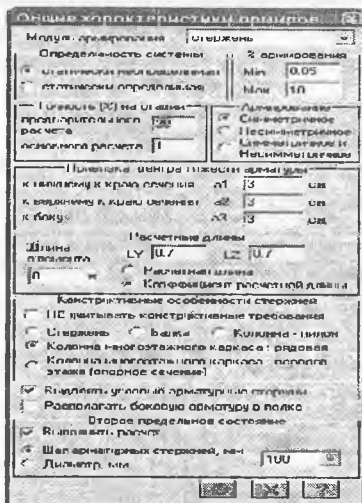 Общие характеристики армиров.
Модуль армирования Стержень
Определимость системы % армирования
статически неопределимая Min 0.05
статически определимая Max 10
Точность (%) на стадии Армирование
предварительного расчета 20 Симметричное
основного расчета 1 Несимметричное
Симметричное и Несимметричное
Привязка центра тяжести арматуры
к нижнему краю сечения a1 3 см
к верхнему краю сечения a2 3 см
к боку a3 3 см
Расчетные длины
Длина элемента LY 0.7 LZ 0.7
0 м Расчетная длина
Коэффициент расчетной длины
Конструктивные особенности стержней
НЕ учитывать конструктивные требования
Стержень Балка Колонна - пилон
Колонна многоэтажного каркаса : рядовая
Колонна многоэтажного каркаса : первого
этажа (опорное сечение)
Выделять угловые арматурные стержни
Располагать боковую арматуру в полке
Второе предельное состояние
Выполнять расчет
Шаг арматурных стержней, мм 100
Диаметр, мм